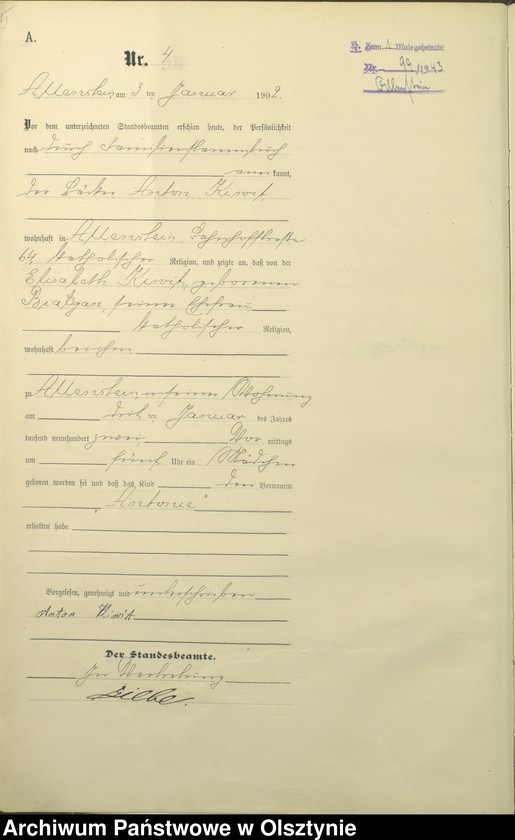 A.
Nr. 4
Allenstein, am 3 ten Januar 1902.
Vor dem unterzeichneten Standesbeamten erschien heute, der Persönlichkeit
nach durch Familienstammbuch
anerkannt,
der Bäcker Anton
wohnhaft in Allenstein, Bahnhofstraße
64 katholischer Religion, und zeigte an, daß von der
Elisabeth geborenen
seiner Ehefrau,
katholischer Religion,
wohnhaft bei ihm
zu Allenstein in seiner Wohnung
am drit ten Januar des Jahres
tausend neunhundert zwei, Vor mittags
um fünf Uhr ein Mädchen
geboren worden sei und daß das Kind den Vornamen
„Antonie"
erhalten habe
Vorgelesen, genehmigt und unterschrieben
Anton
Der Standesbeamte.
In Vertretung
Zum 1. Male geheiratet
Nr. 99/1943
Allenstein
Archiwum Państwowe w Olsztynie